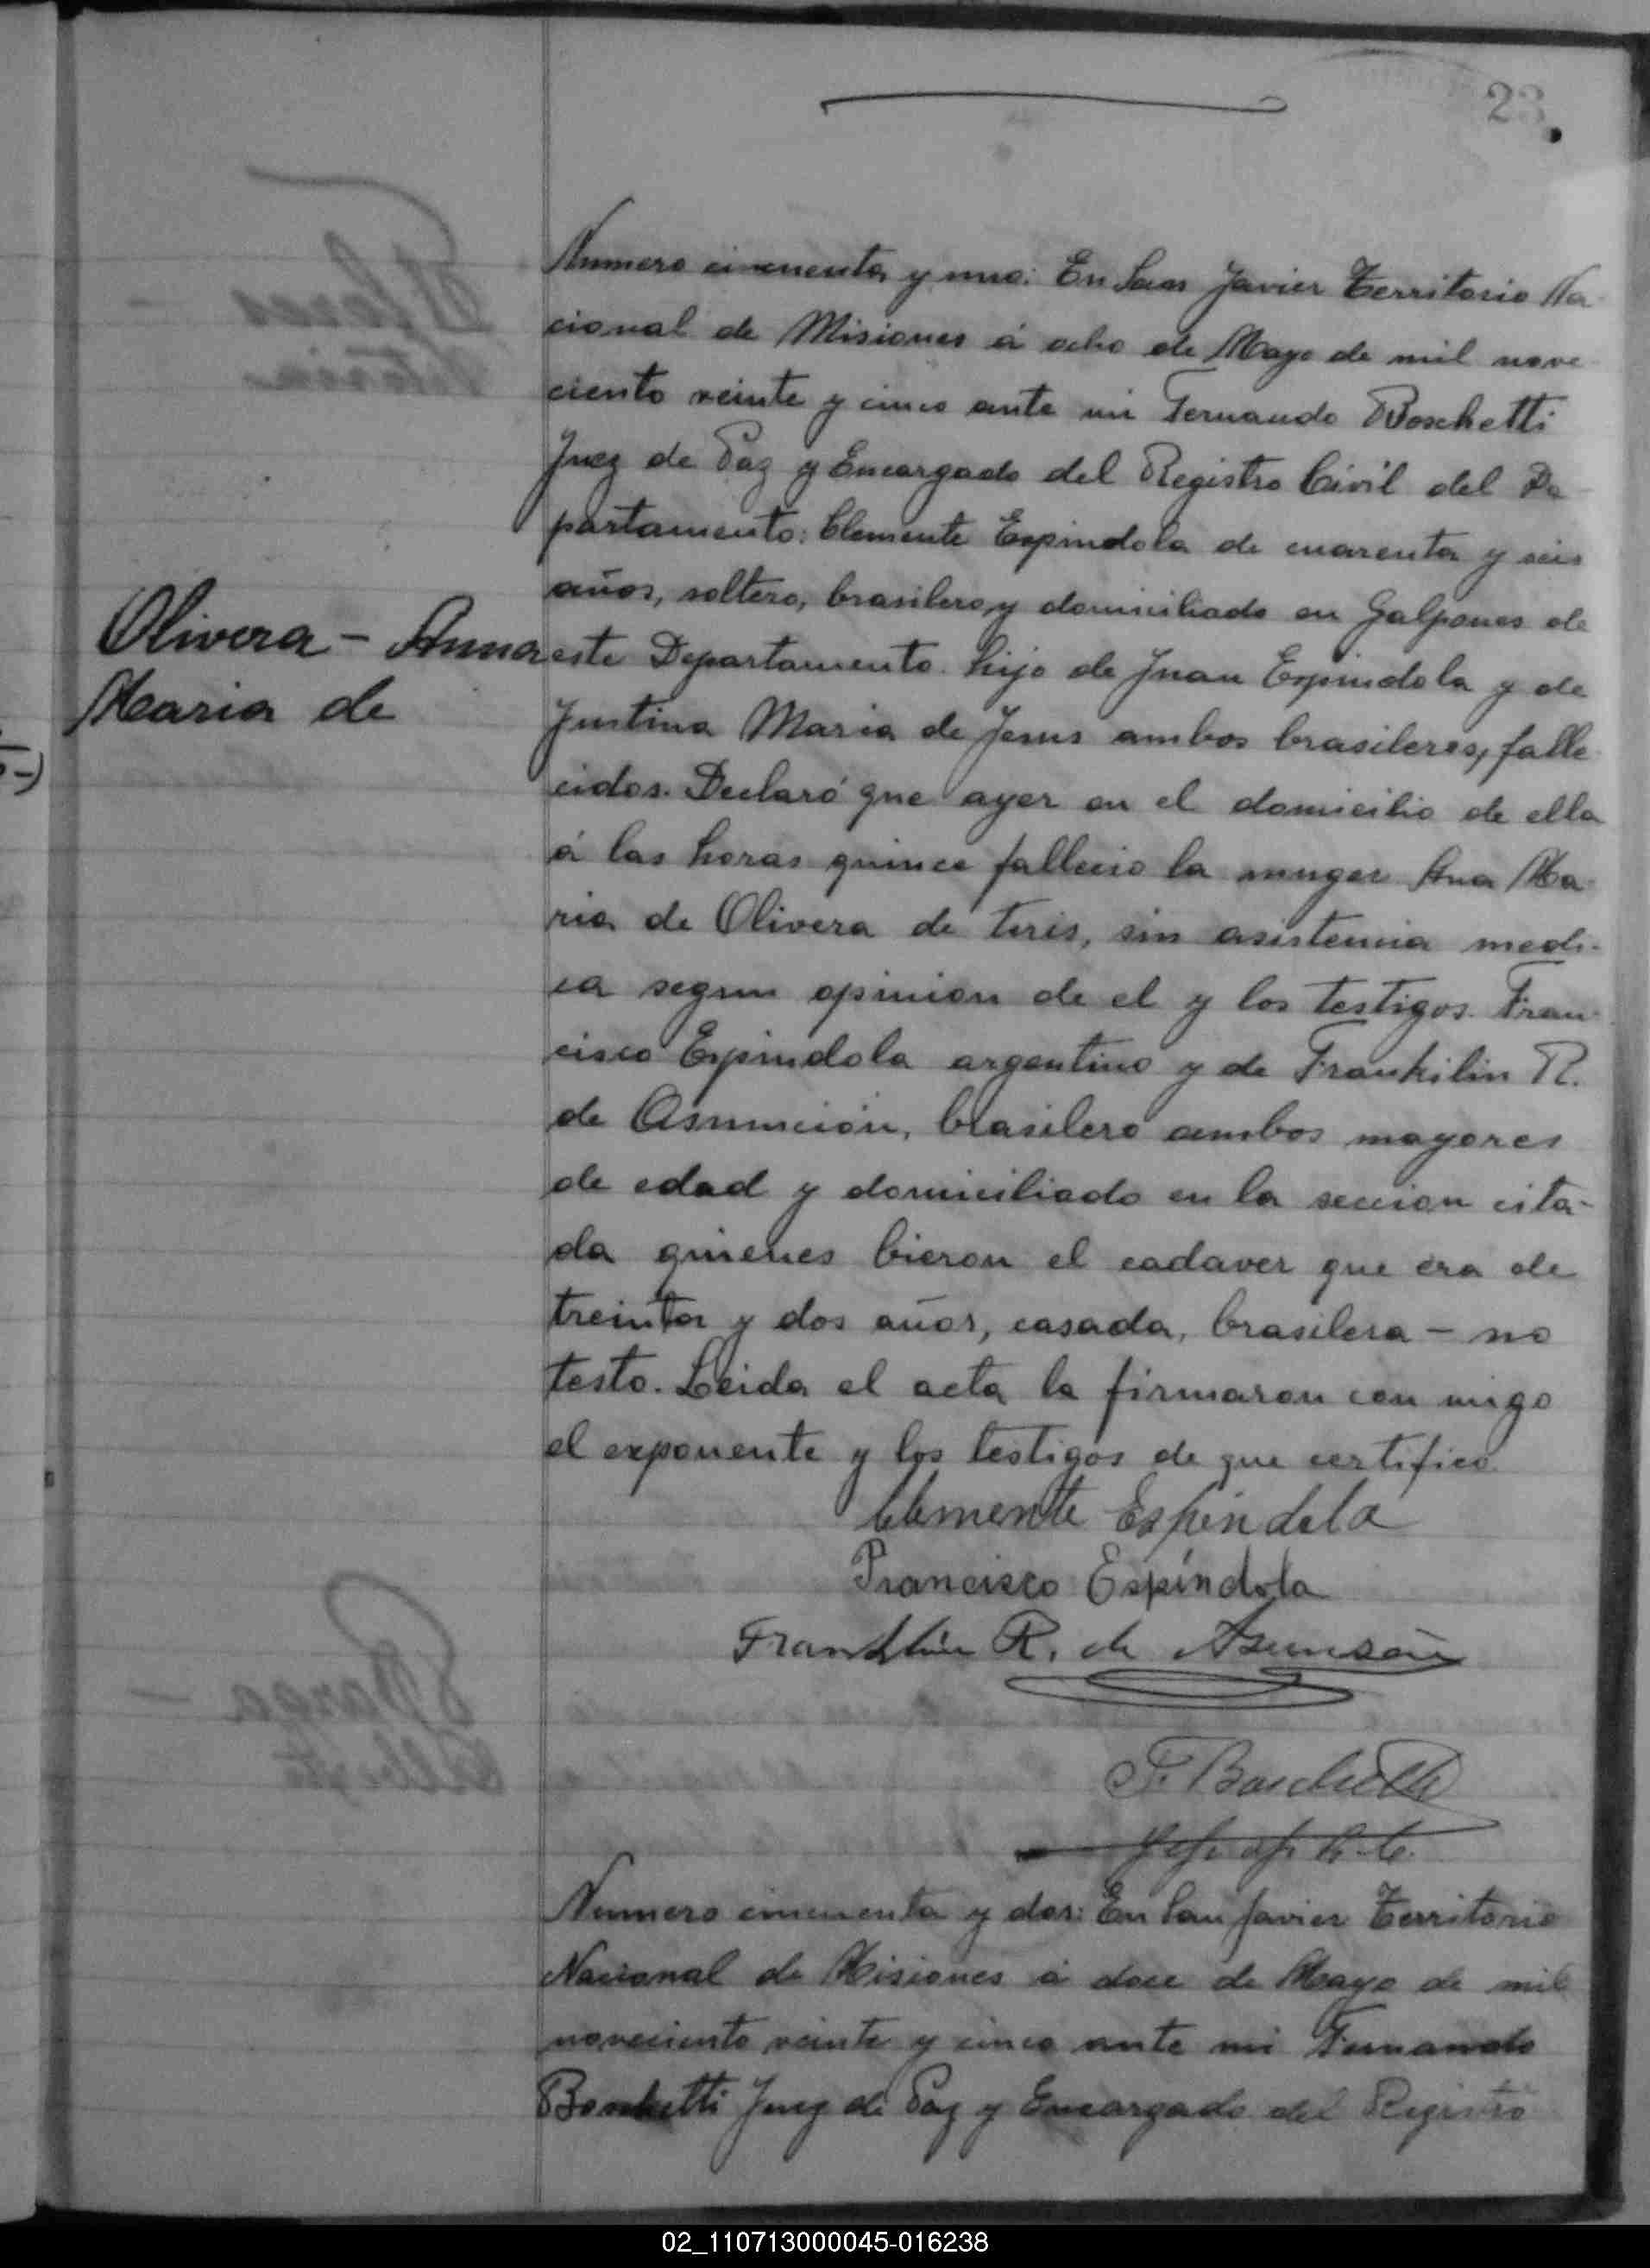 23.
Numero cincuenta y uno: En San Javier Territorio Na
cional de Misiones á ocho de Mayo de mil nove
ciento veinte y cinco ante mi Fernando Boschetti
Juez de Paz y Encargado del Registro Civil del De
partamento: Clemente Espindola de cuarenta y seis
años, soltero, brasilero, y domiciliado en Galpones de
Olivera - Anna
Maria de
este Departamento hijo de Juan Espindola y de
Justina Maria de Jesus ambos brasileros, falle
cidos. Declaró que ayer en el domicilio de ella
á las horas quince fallecio la muger Ana Ma
ria de Olivera de teris, sin asistencia medi-
ca segun opinion de el y los testigos Fran
cisco Espindola argentino y de Frankilin R.
de Asuncion, brasilero ambos mayores
de edad y domiciliado en la seccion cita-
da quienes bieron el cadaver que era de
treinta y dos años, casada, brasilera - no
testo. Leida el acta la firmaron con migo
el exponente y los testigos de que certifico
Clemente Espindola
Francisco Espíndola
Franklin R. de Asunsão
F. Boschetti
Numero cincuenta y dos: En San Javier Territorio
Nacional de Misiones á doce de Mayo de mil
noveciento veinte y cinco ante mi Fernando
Boschetti Juez de Paz y Encargado del Registro
02_110713000045-016238